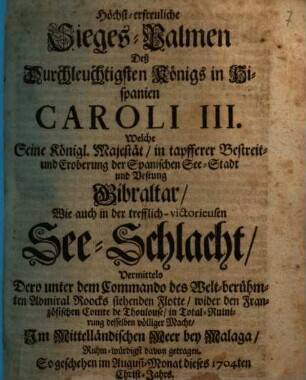 7
Höchst-erfreuliche
Sieges-Palmen
Deß
Durchleuchtigsten Königs in Hi-
spanien
CAROLI III.
Welche
Seine Königl. Majestät / in tapfferer Bestreit-
und Eroberung der Spanischen See-Stadt
und Vestung
Gibraltar /
Wie auch in der trefflich-victorieusen
See-Schlacht /
Vermittels
Dero unter dem Commando des Welt-berühm-
ten Admiral Roocks stehenden Flotte / wider den Fran-
zösischen Comte de Thoulouse / in Total-Ruini-
rung desselben völliger Macht /
Im Mittelländischen Meer bey Malaga /
Ruhm-würdigst davon getragen.
So geschehen im August-Monat dieses 1704ten
Christ-Jahrs.